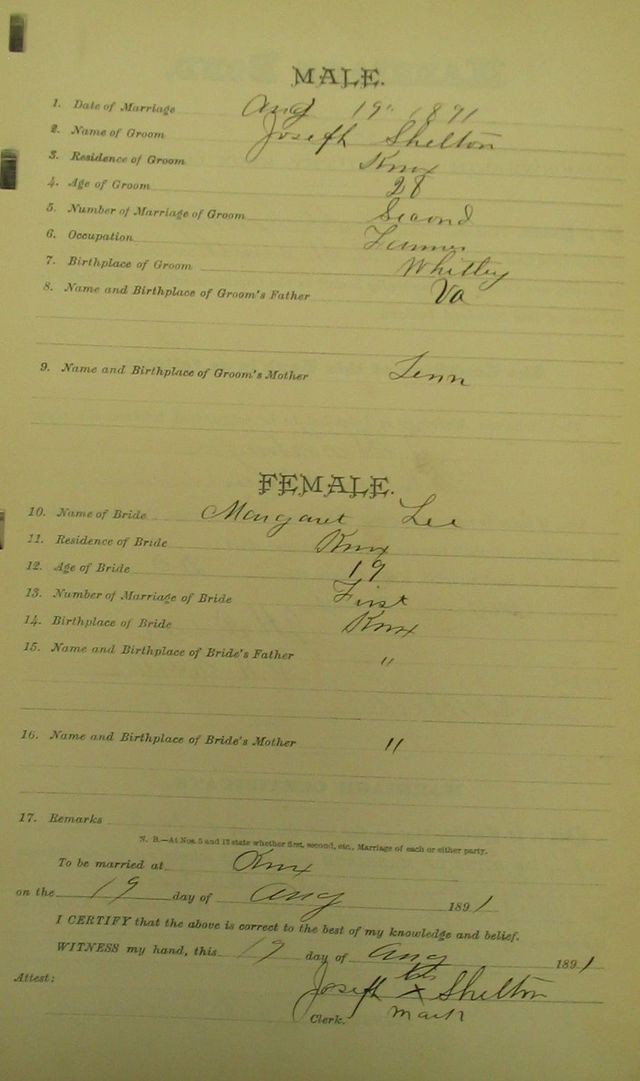 MALE.
1. Date of Marriage Aug 19" 1891
2. Name of Groom Joseph Shelton
3. Residence of Groom Knox
4. Age of Groom 28
5. Number of Marriage of Groom Second
6. Occupation Farmer
7. Birthplace of Groom Whitley
8. Name and Birthplace of Groom's Father Va
9. Name and Birthplace of Groom's Mother Tenn
FEMALE.
10. Name of Bride Margaret Lee
11. Residence of Bride Knox
12. Age of Bride 19
13. Number of Marriage of Bride First
14. Birthplace of Bride Knox
15. Name and Birthplace of Bride's Father "
16. Name and Birthplace of Bride's Mother "
17. Remarks
N. B.—At Nos. 5 and 13 state whether first, second, etc., Marriage of each or either party.
To be married at Knox
on the 19 day of Aug 1891
I CERTIFY that the above is correct to the best of my knowledge and belief.
WITNESS my hand, this 19 day of Aug 1891
his
Attest: Joseph x Shelton
Clerk. mark